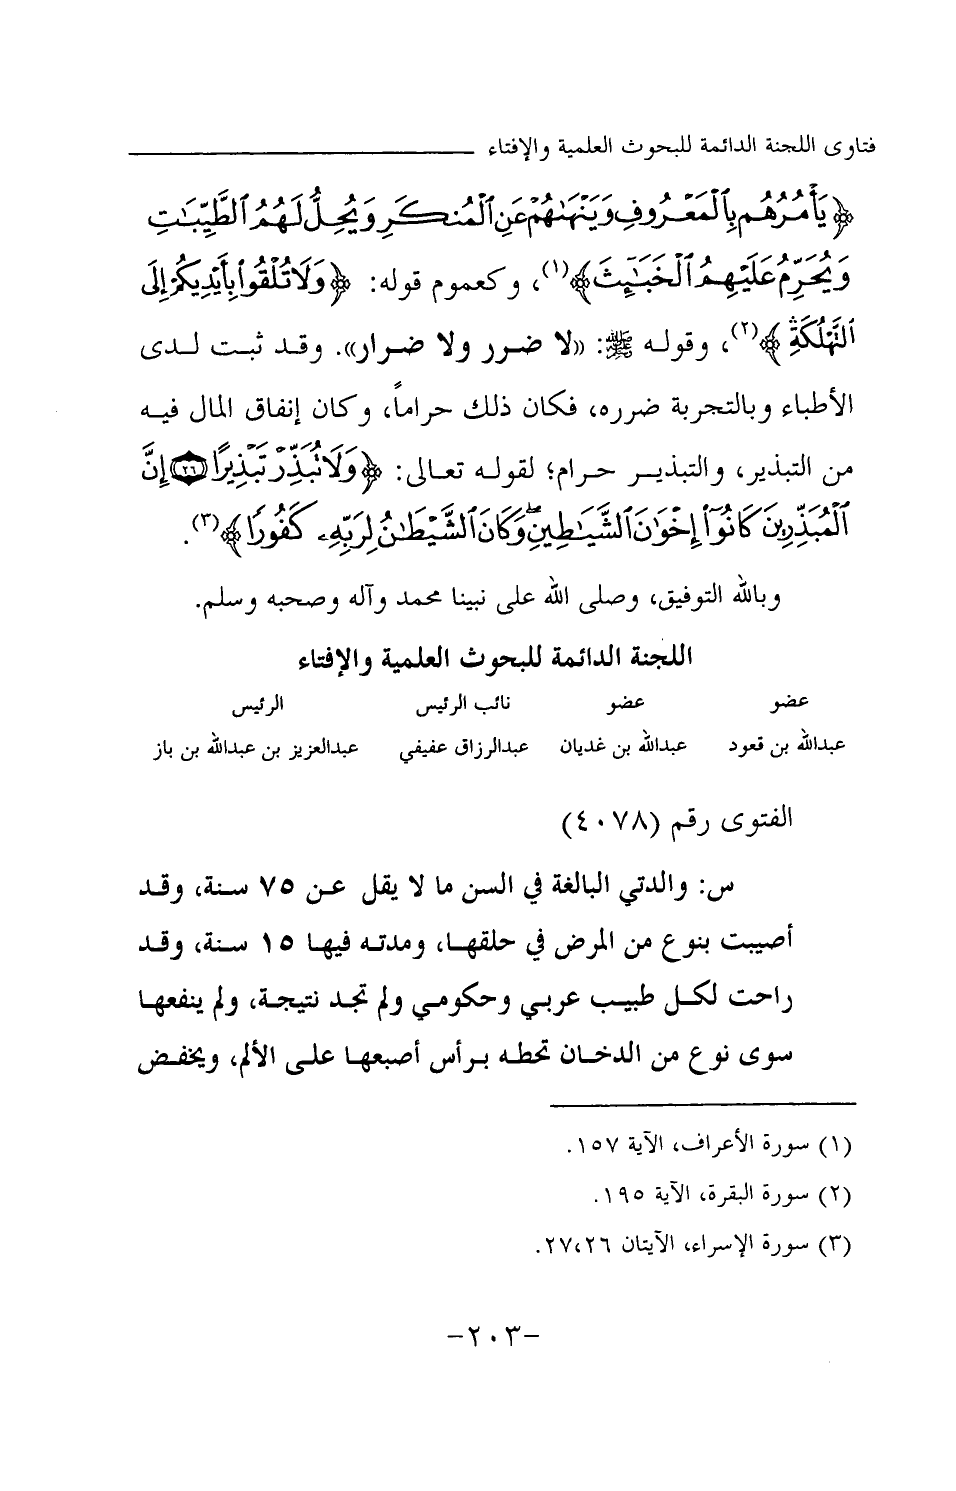 فتاوى اللجنة الدائمة للبحوث العلمية والإفتاء
﴿يَأْمُرُهُم بِٱلْمَعْرُوفِ وَيَنْهَىٰهُمْ عَنِ ٱلْمُنكَرِ وَيُحِلُّ لَهُمُ ٱلطَّيِّبَٰتِ
وَيُحَرِّمُ عَلَيْهِمُ ٱلْخَبَٰٓئِثَ﴾(١)، وكعموم قوله: ﴿وَلَا تُلْقُوا۟ بِأَيْدِيكُمْ إِلَى
ٱلتَّهْلُكَةِ﴾(٢)، وقوله ﷺ: «لا ضرر ولا ضرار». وقد ثبت لدى
الأطباء وبالتجربة ضرره، فكان ذلك حراماً، وكان إنفاق المال فيه
من التبذير، والتبذير حرام؛ لقوله تعالى: ﴿وَلَا تُبَذِّرْ تَبْذِيرًا ٢٦ إِنَّ
ٱلْمُبَذِّرِينَ كَانُوٓا۟ إِخْوَٰنَ ٱلشَّيَٰطِينِ ۖ وَكَانَ ٱلشَّيْطَٰنُ لِرَبِّهِۦ كَفُورًا﴾(٣).
وبالله التوفيق، وصلى الله على نبينا محمد وآله وصحبه وسلم.
اللجنة الدائمة للبحوث العلمية والإفتاء
عضو عضو نائب الرئيس الرئيس
عبدالله بن قعود عبدالله بن غديان عبدالرزاق عفيفي عبدالعزيز بن عبدالله بن باز
الفتوى رقم (٤٠٧٨)
س: والدتي البالغة في السن ما لا يقل عن ٧٥ سنة، وقد
أصيبت بنوع من المرض في حلقها، ومدته فيها ١٥ سنة، وقد
راحت لكل طبيب عربي وحكومي ولم تجد نتيجة، ولم ينفعها
سوى نوع من الدخان تحطه برأس أصبعها على الألم، ويخفض
(١) سورة الأعراف، الآية ١٥٧.
(٢) سورة البقرة، الآية ١٩٥.
(٣) سورة الإسراء، الآيتان ٢٧،٢٦.
-٢٠٣-